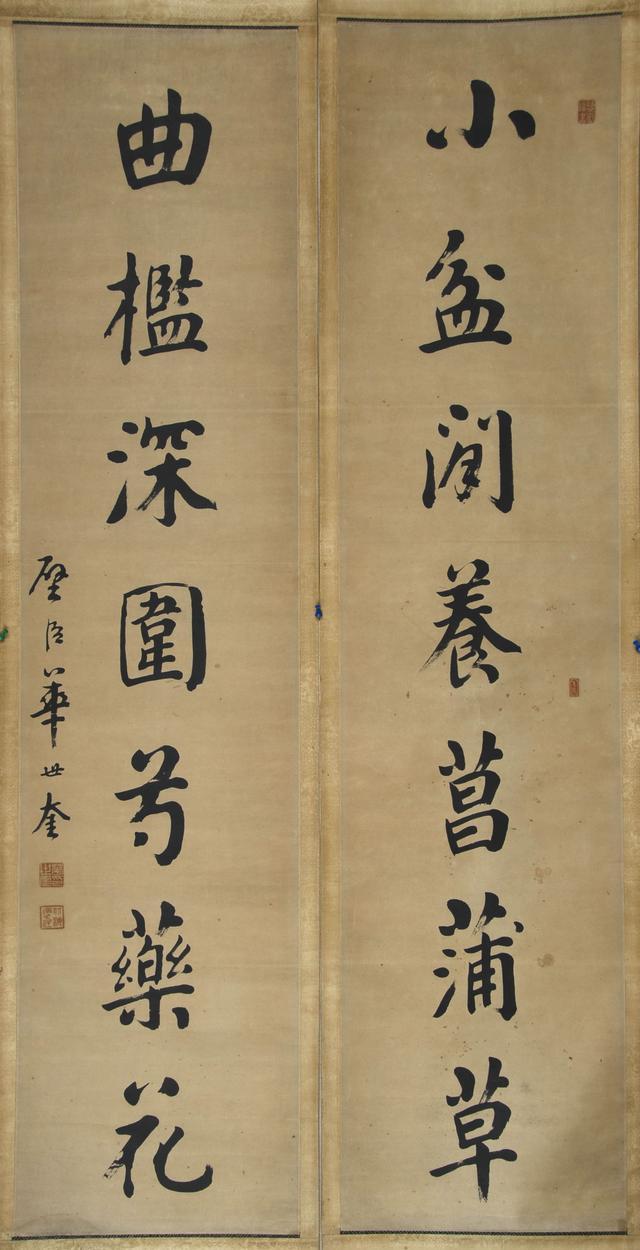 小盆閒養菖蒲草
曲檻深圍芍藥花
璧臣華世奎